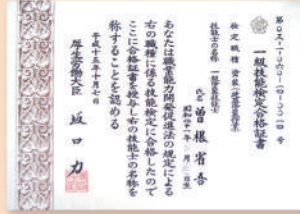 一級技能検定合格証書
検定職種 塗装(建築塗装作業)
技能士の名称 一級塗装技能士
氏名 曽根省吾
昭和
あなたは職業能力開発促進法の規定による
右の職種に係る技能検定に合格したので
ここに合格証書を授与し右の技能士の名称を
称することを認める
平成十五年十月七日
厚生労働大臣 坂口力